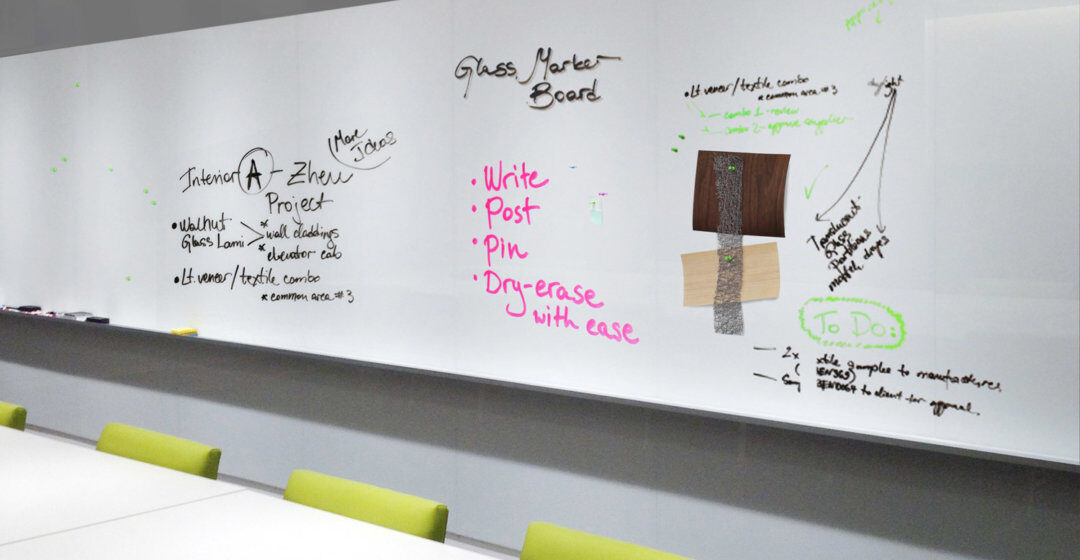 Glass Marker
Board
Interior A - Zheu
Project
(More
Ideas
• Walnut
Glass Lami
* wall claddings
* elevator cab
• Lt. veneer/textile combo
* common area #3
• Write
• Post
• Pin
• Dry-erase
with ease
• Lt veneer/textile combo
* common area #3
combo 1 - review
combo 2 - approve
Glass
Partitions
match drops
To Do:
— 2x
xtile samples to manufactures
—
to client for approval